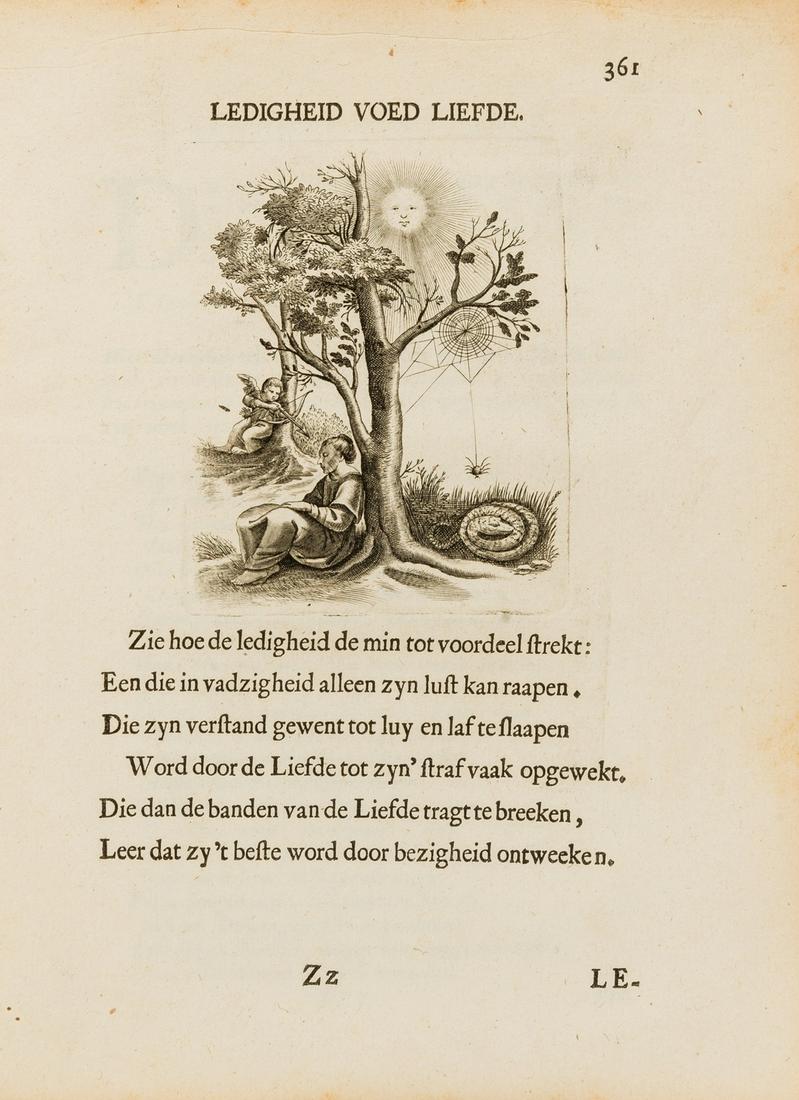 361
LEDIGHEID VOED LIEFDE.
Zie hoe de ledigheid de min tot voordeel ſtrekt:
Een die in vadzigheid alleen zyn luſt kan raapen.
Die zyn verſtand gewent tot luy en laf te ſlaapen
Word door de Liefde tot zyn' ſtraf vaak opgewekt.
Die dan de banden van de Liefde tragt te breeken,
Leer dat zy 't beſte word door bezigheid ontweeken.
Zz LE-